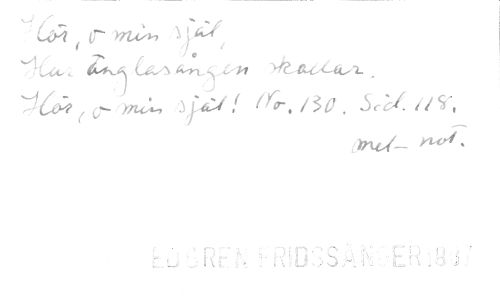 Hör, o min själ,
Hur änglasången skallar.
Hör, o min själ! No. 130. Sid. 118.
mel- not.
EDGREN FRIDSSÅNGER